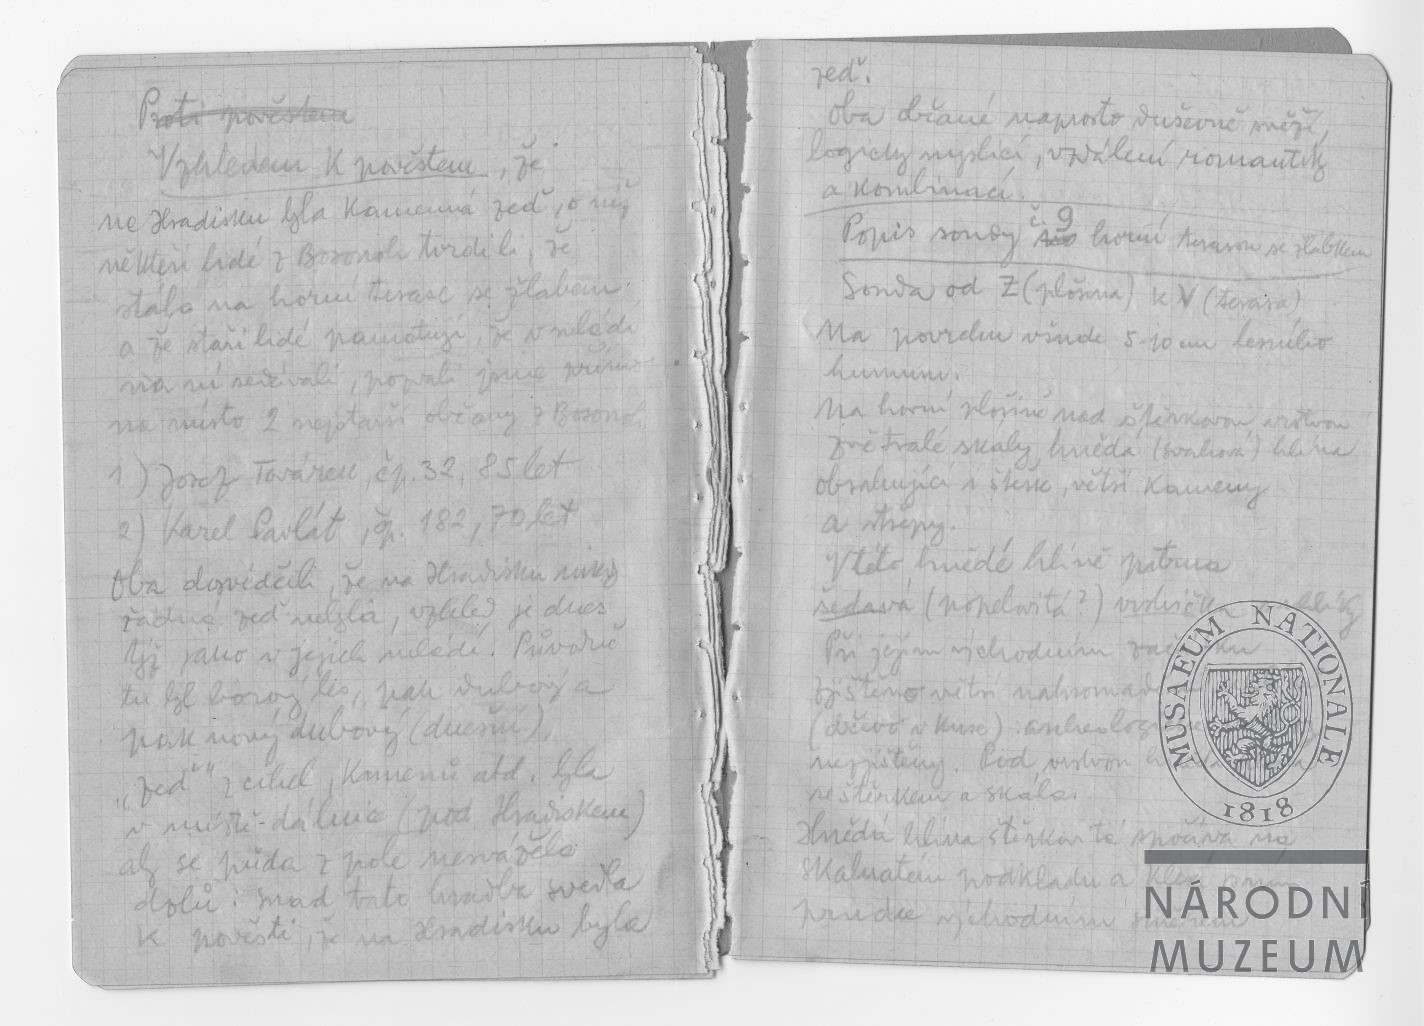 Proti pověstem
Vzhledem k pověstem, že
na Hradisku byla kamenná zeď, o níž
někteří lidé z Bosonoh tvrdili, že
stála na horní terase se žlabem
a že staří lidé pamatují, že v mládí
na ní sedávali, pozvali jsme přímo
na místo 2 nejstarší občany z Bosonoh
1) Josef Továrek, čp. 32, 85 let
2) Karel Pavlát, čp. 182, 70 let
Oba dosvědčili, že na Hradisku nikdy
žádná zeď nebyla, vzhled je dnes
týž jako v jejich mládí. Původně
tu byl borový les, pak dubový a
pak nový dubový (dnešní).
„Zeď" z cihel, kamenů atd. byla
v místě dálnice (pod Hradiskem)
aby se půda z pole nesvážela
dolů: snad tato hradba svedla
k pověsti, že na Hradisku byla
zeď.
Oba občané naprosto duševně svěží,
logicky myslící, vzdálení romantiky
a kombinací.
Popis sondy č. 9 horní terasou se žlábkem
Sonda od Z (plošina) k V (terasa)
Na povrchu všude 5-10 cm lesního
humusu.
Na horní plošině nad štěrkovou vrstvou
zvětralé skály hnědá (svahová) hlína
obsahující i štěrk, větší kameny
a střepy.
V této hnědé hlíně patrna
šedavá (popelovitá?) vrstvička
Při jejím východním
zjištěno větší
(dřevo v kuse)
nezjištěny. Pod vrstvou
se štěrkem a skála.
Hnědá hlína štěrkovitá spočívá na
skalnatém podkladu a klesá
prudce východním směrem
MUSAEUM NATIONALE
1818
NÁRODNÍ
MUZEUM